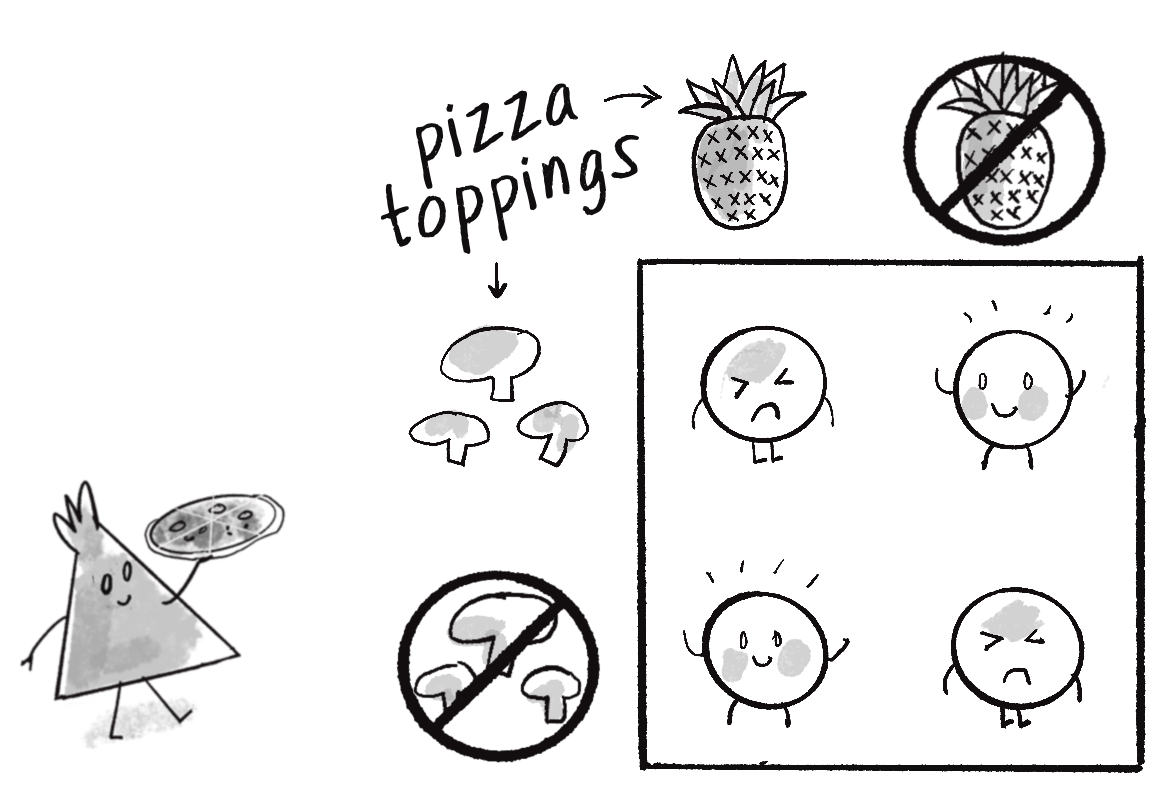 pizza
toppings